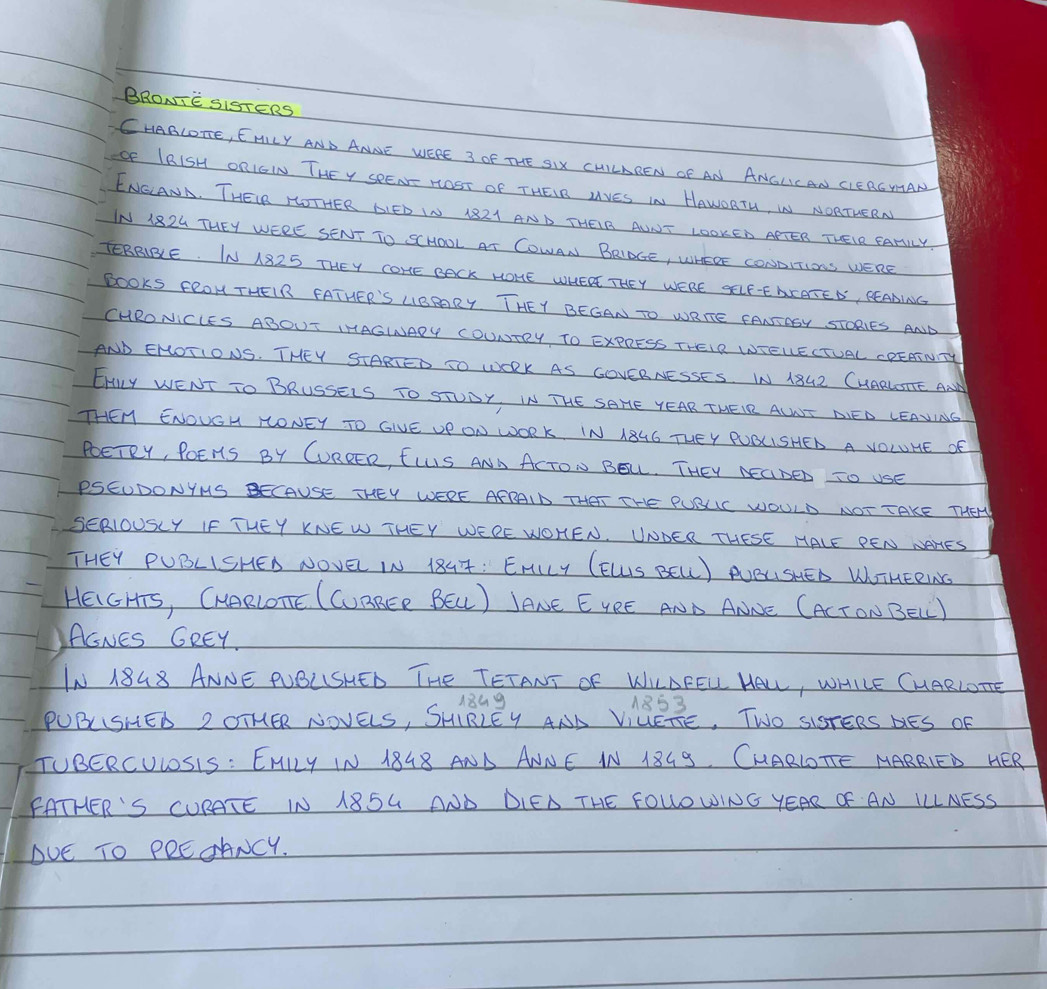 BRONTË SISTERS
CHARLOTTE, EMILY AND ANNE WERE 3 OF THE SIX CHILDREN OF AN ANGLICAN CLERGYMAN
OF IRISH ORIGIN THEY SPENT MOST OF THEIR LIVES IN HAWORTH, IN NORTHERN
ENGLAND. THEIR MOTHER DIED IN 1821 AND THEIR AUNT LOOKED AFTER THEIR FAMILY.
IN 1824 THEY WERE SENT TO SCHOOL AT COWAN BRIDGE, WHERE CONDITIONS WERE
TERRIBLE. IN 1825 THEY COME BACK HOME WHERE THEY WERE SELF-EDUCATED, READING
BOOKS FROM THEIR FATHER'S LIBRARY. THEY BEGAN TO WRITE FANTASY STORIES AND
CHRONICLES ABOUT IMAGINARY COUNTRY, TO EXPRESS THEIR INTELLECTUAL CREATIVITY
AND EMOTIONS. THEY STARTED TO WORK AS GOVERNESSES. IN 1842 CHARLOTTE AND
EMILY WENT TO BRUSSELS TO STUDY, IN THE SAME YEAR THEIR AUNT DIED LEAVING
THEM ENOUGH MONEY TO GIVE UP ON WORK. IN 1846 THEY PUBLISHED A VOLUME OF
POETRY, POEMS BY CURRER, ELLIS AND ACTON BELL. THEY DECIDED TO USE
PSEUDONYMS BECAUSE THEY WERE AFRAID THAT THE PUBLIC WOULD NOT TAKE THEM
SERIOUSLY IF THEY KNEW THEY WERE WOMEN. UNDER THESE MALE PEN NAMES
THEY PUBLISHED NOVEL IN 1847: EMILY (ELLIS BELL) PUBLISHED WUTHERING
HEIGHTS, CHARLOTTE (CURRER BELL) JANE EYRE AND ANNE (ACTON BELL)
AGNES GREY.
IN 1848 ANNE PUBLISHED THE TETANT OF WILDFELL HALL, WHILE CHARLOTTE
1849 1853
PUBLISHED 2 OTHER NOVELS, SHIRLEY AND VILLETTE. TWO SISTERS DIES OF
TUBERCULOSIS: EMILY IN 1848 AND ANNE IN 1849. CHARLOTTE MARRIED HER
FATHER'S CURATE IN 1854 AND DIED THE FOLLOWING YEAR OF AN ILLNESS
DUE TO PREGNANCY.